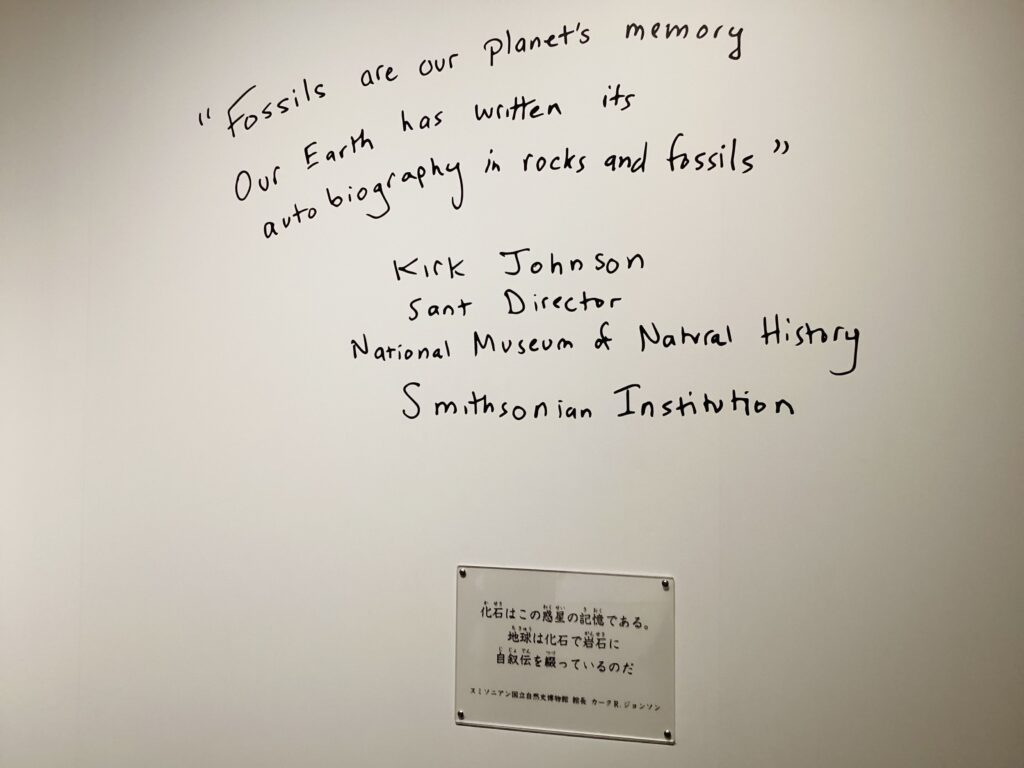 "Fossils are our planet's memory
Our Earth has written its
autobiography in rocks and fossils"
Kirk Johnson
Sant Director
National Museum of Natural History
Smithsonian Institution
か せき わく せい き おく
化石はこの惑星の記憶である。
ち きゅう がん せき
地球は化石で岩石に
じ じょ でん つづ
自叙伝を綴っているのだ
スミソニアン国立自然史博物館 館長 カーク R. ジョンソン